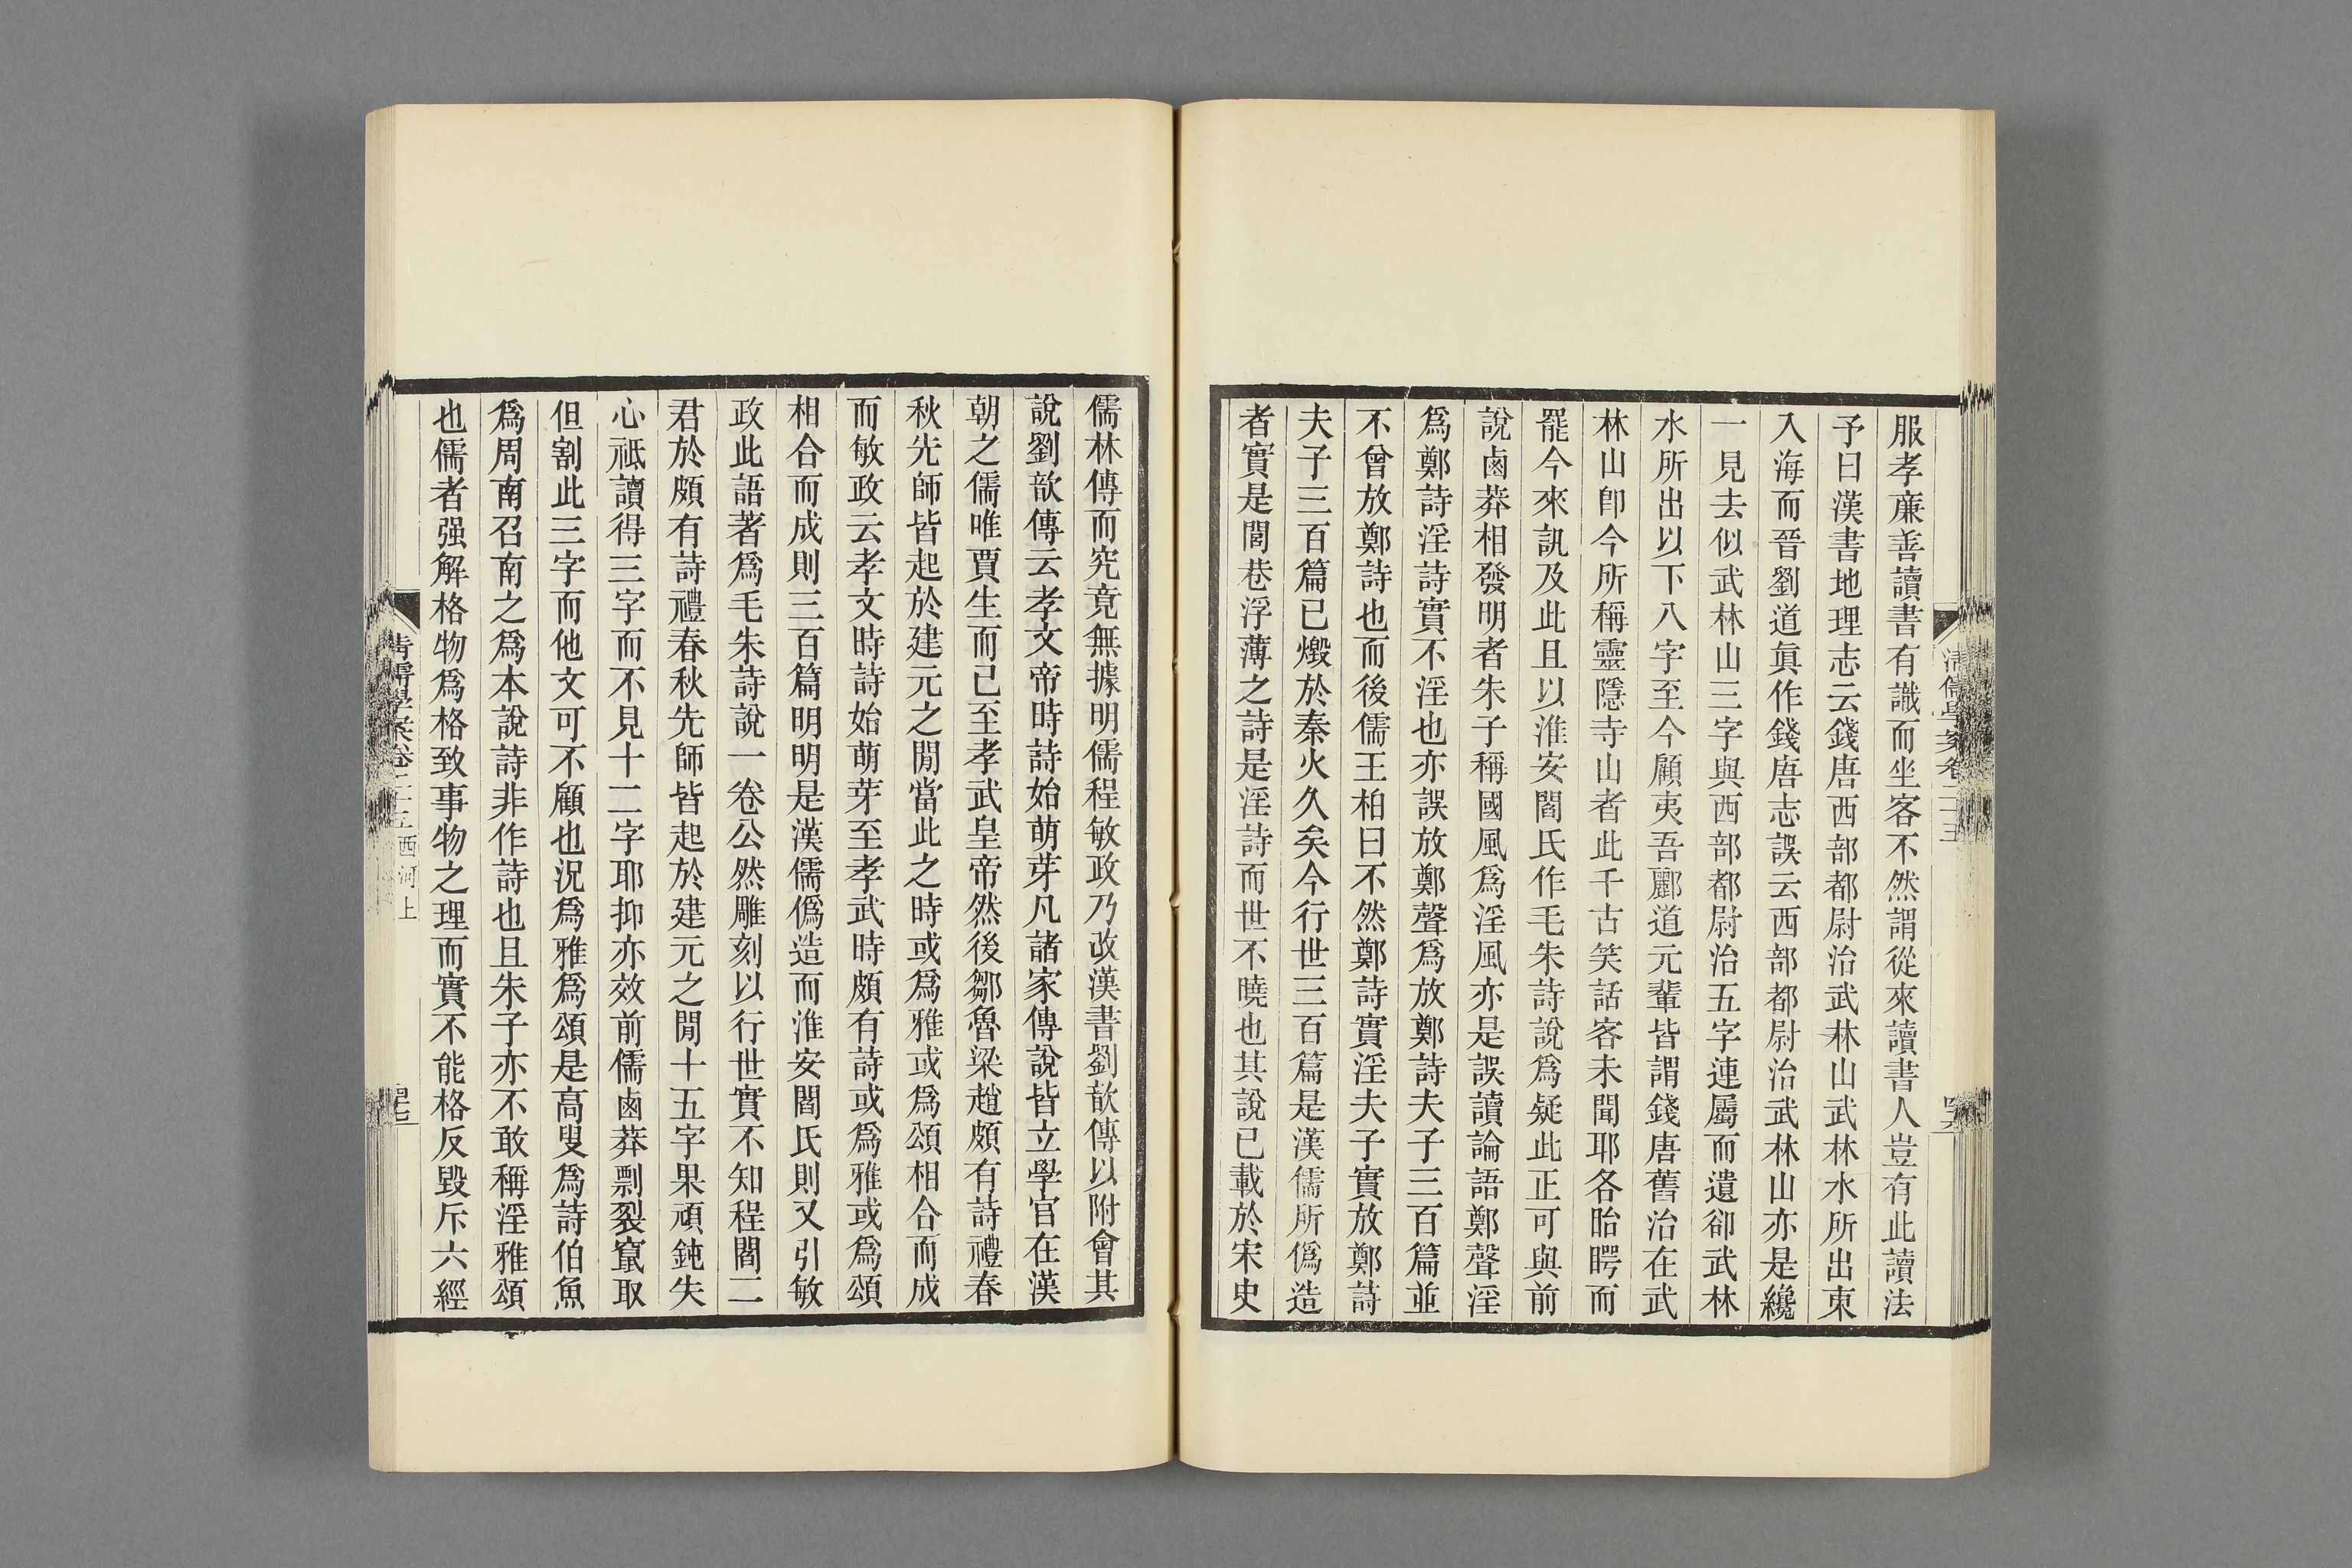 服孝廉善讀書有識而坐客不然謂從來讀書人豈有此讀法
予曰漢書地理志云錢唐西部都尉治武林山武林水所出東
入海而晉劉道眞作錢唐志誤云西部都尉治武林山亦是纔
一見去似武林山三字與西部都尉治五字連屬而遺卻武林
水所出以下八字至今顧夷吾酈道元輩皆謂錢唐舊治在武
林山卽今所稱靈隱寺山者此千古笑話客未聞耶各眙睜而
罷今來訊及此且以淮安閻氏作毛朱詩說爲疑此正可與前
說鹵莽相發明者朱子稱國風爲淫風亦是誤讀論語鄭聲淫
爲鄭詩淫詩實不淫也亦誤放鄭聲爲放鄭詩夫子三百篇並
不曾放鄭詩也而後儒王柏曰不然鄭詩實淫夫子實放鄭詩
夫子三百篇已燬於秦火久矣今行世三百篇是漢儒所僞造
者實是閭巷浮薄之詩是淫詩而世不曉也其說已載於宋史
清儒學案卷二十五
儒林傳而究竟無據明儒程敏政乃改漢書劉歆傳以附會其
說劉歆傳云孝文帝時詩始萌芽凡諸家傳說皆立學官在漢
朝之儒唯賈生而已至孝武皇帝然後鄒魯梁趙頗有詩禮春
秋先師皆起於建元之閒當此之時或爲雅或爲頌相合而成
而敏政云孝文時詩始萌芽至孝武時頗有詩或爲雅或爲頌
相合而成則三百篇明明是漢儒僞造而淮安閻氏則又引敏
政此語著爲毛朱詩說一卷公然雕刻以行世實不知程閻二
君於頗有詩禮春秋先師皆起於建元之閒十五字果頑鈍失
心祗讀得三字而不見十二字耶抑亦效前儒鹵莽剽裂竄取
但割此三字而他文可不顧也況爲雅爲頌是高叟爲詩伯魚
爲周南召南之爲本說詩非作詩也且朱子亦不敢稱淫雅頌
也儒者强解格物爲格致事物之理而實不能格反毀斥六經
清儒學案卷二十五 西河上